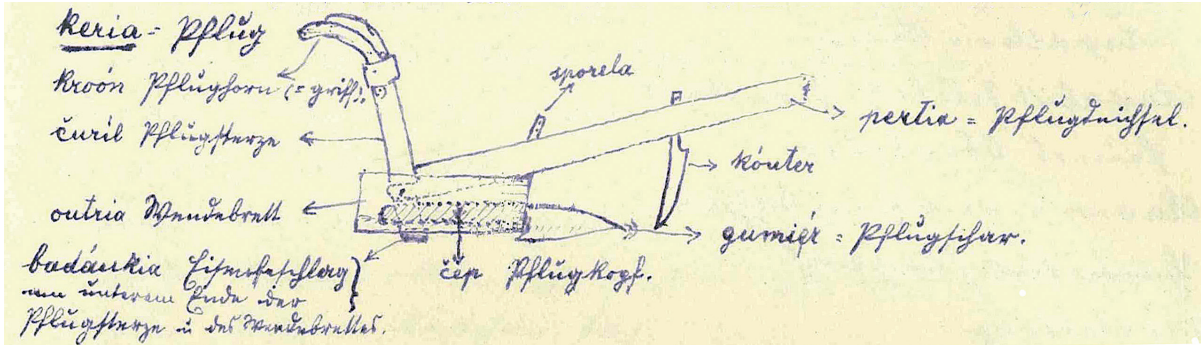 keria = Pflug
kroón Pflughorn (= griff!!
čuril Pflugsterze
outria Wendebrett
badánkia Eisenbeschlag
am unterem Ende der
Pflugsterze u des Wendebrettes.
sporela
pertia = Pflugdeichsel.
kónter
gumiér = Pflugschar.
čép Pflugkopf.